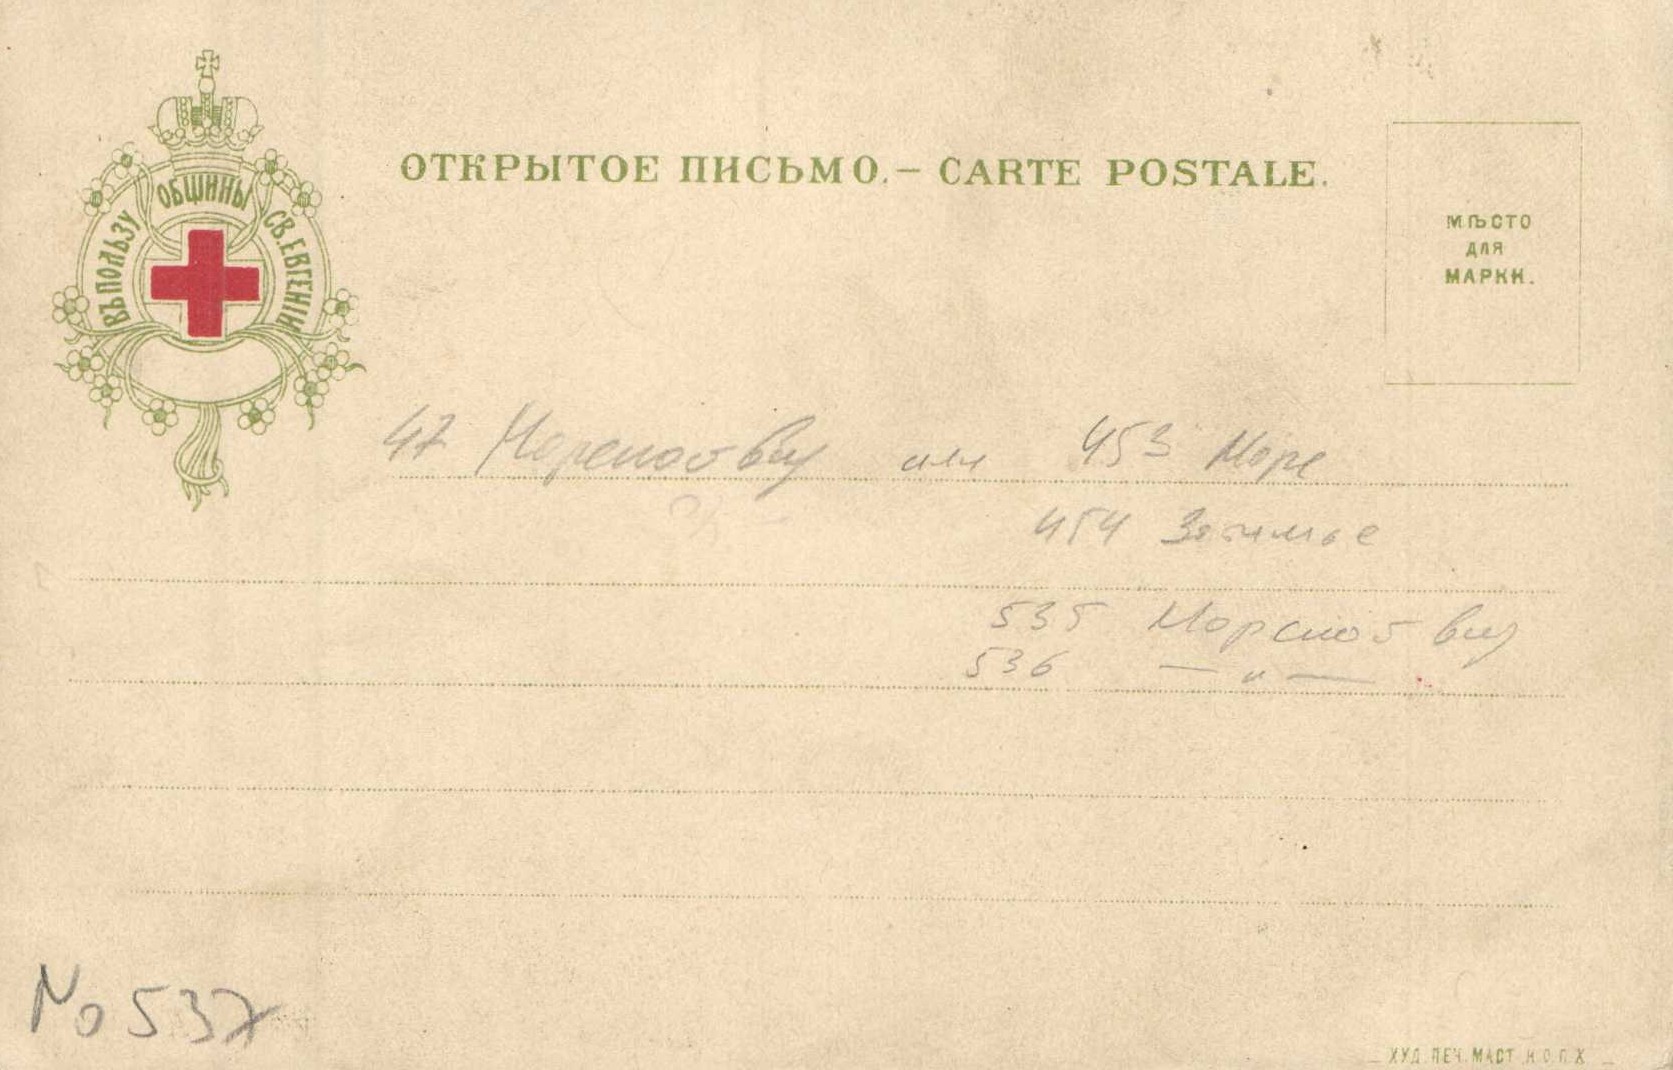 ОТКРЫТОЕ ПИСЬМО.– CARTE POSTALE.
ВЪ ПОЛЬЗУ ОБЩИНЫ СВ. ЕВГЕНІИ
МѢСТО
ДЛЯ
МАРКИ.
47 Морской вид или 453 Море
454 Затишье
535 Морской вид
536 — „ —
No 537
ХУД. ПЕЧ. МАСТ. И.О.П.Х.